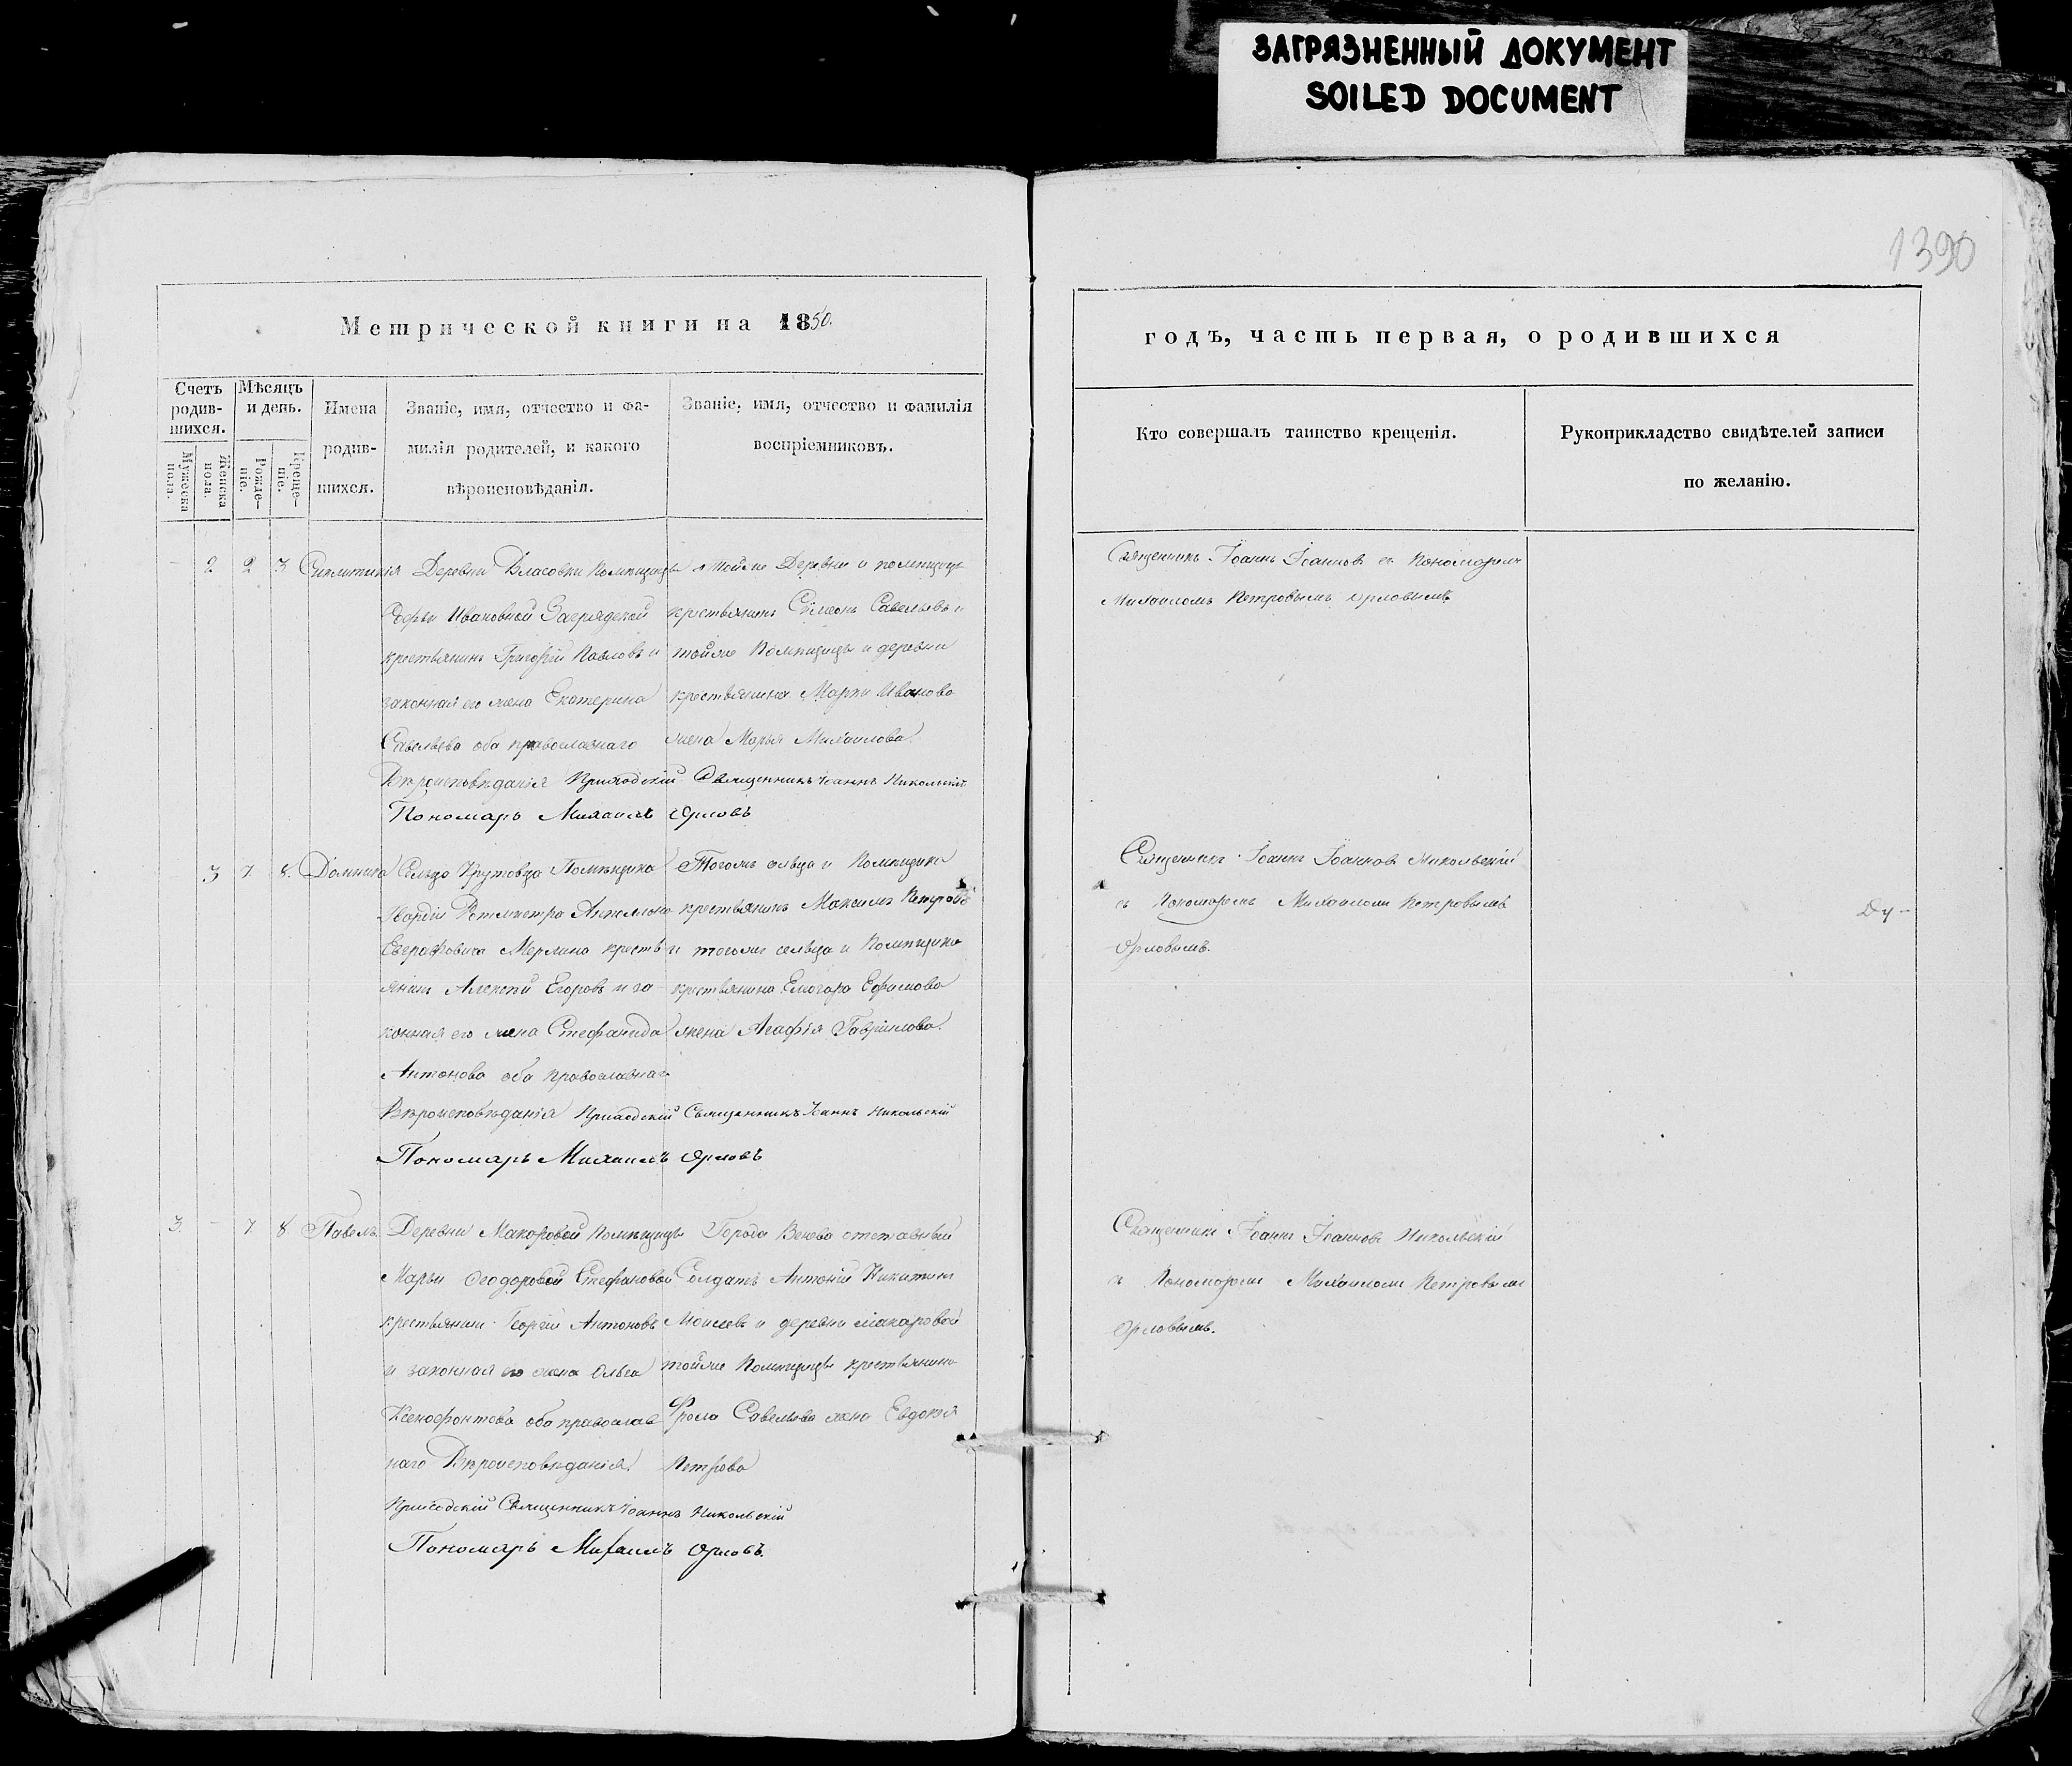 ЗАГРЯЗНЕННЫЙ ДОКУМЕНТ
SOILED DOCUMENT
1390
Метрической книги на 1850.
Счетъ родив-шихся.
Мужеска пола.
Женска пола.
Мѣсяцъ и день.
Рожде-ніе.
Креще-ніе.
Имена
родив-
шихся.
Званіе, имя, отчество и фа-
милія родителей, и какого
вѣроисповѣданія.
Званіе, имя, отчество и фамилія
воспріемниковъ.
- 2 2 3 Синклитикія
Деревни Власовки Помѣщицы
Софьи Ивановной Загряцкой
крестьянинъ Григорій Павловъ и
законная его жена Екатерина
Савельева оба православнаго
Вѣроисповѣданія
тойже Деревни и помѣщицы
крестьянинъ Сѵмеонъ Савельевъ и
тойже Помѣщицы и деревни
крестьянина Иванова
жена Марья Михаилова.
Приходскій Священникъ Іоаннъ Никольскій
Пономарь Михаилъ Орловъ
3 7 8 Домника
Сельца Крутовца Помѣщика
Гвардіи Ротмистра
Евграфовича Мерлина кресть
янинъ Алексѣй Егоровъ и за-
конная его жена Стефанида
Антонова оба Православнаго
Вѣроисповѣданія
Тогожъ сельца и Помѣщика
крестьянинъ Максимъ Петровъ
и тогоже сельца и Помѣщика
крестьянина Ефимова
жена Агафія Гавріилова.
Приходскій Священникъ Іоаннъ Никольскій
Пономарь Михаилъ Орловъ
3. - 7. 8 Павелъ.
Деревни Макаровой Помѣщицы
Марьи Ѳеодоровой Стефановой
крестьянинъ Георгій Антоновъ
и законная его жена Ольга
Ксенофонтова оба православ
наго Вѣроисповѣданія.
Города Венева отставный
Солдатъ Антоній Никитинъ
Моисеевъ и деревни макаровой
тойже Помѣщицы крестьянина
Фрола Савельева жена Евдокія
Петрова
Приходскій Священникъ Іоаннъ Никольскій
Пономарь Михаилъ Орловъ.
годъ, часть первая, о родившихся
Кто совершалъ таинство крещенія.
Рукоприкладство свидѣтелей записи
по желанію.
Священникъ Іоаннъ Іоанновъ съ Пономаремъ
Михаиломъ Петровымъ Орловымъ
Священникъ Іоаннъ Іоанновъ Никольскій
съ Пономаремъ Михаиломъ Петровымъ
Орловымъ.
Ду-
Священникъ Іоаннъ Іоанновъ Никольскій
съ Пономаремъ Михаиломъ Петровымъ
Орловымъ.